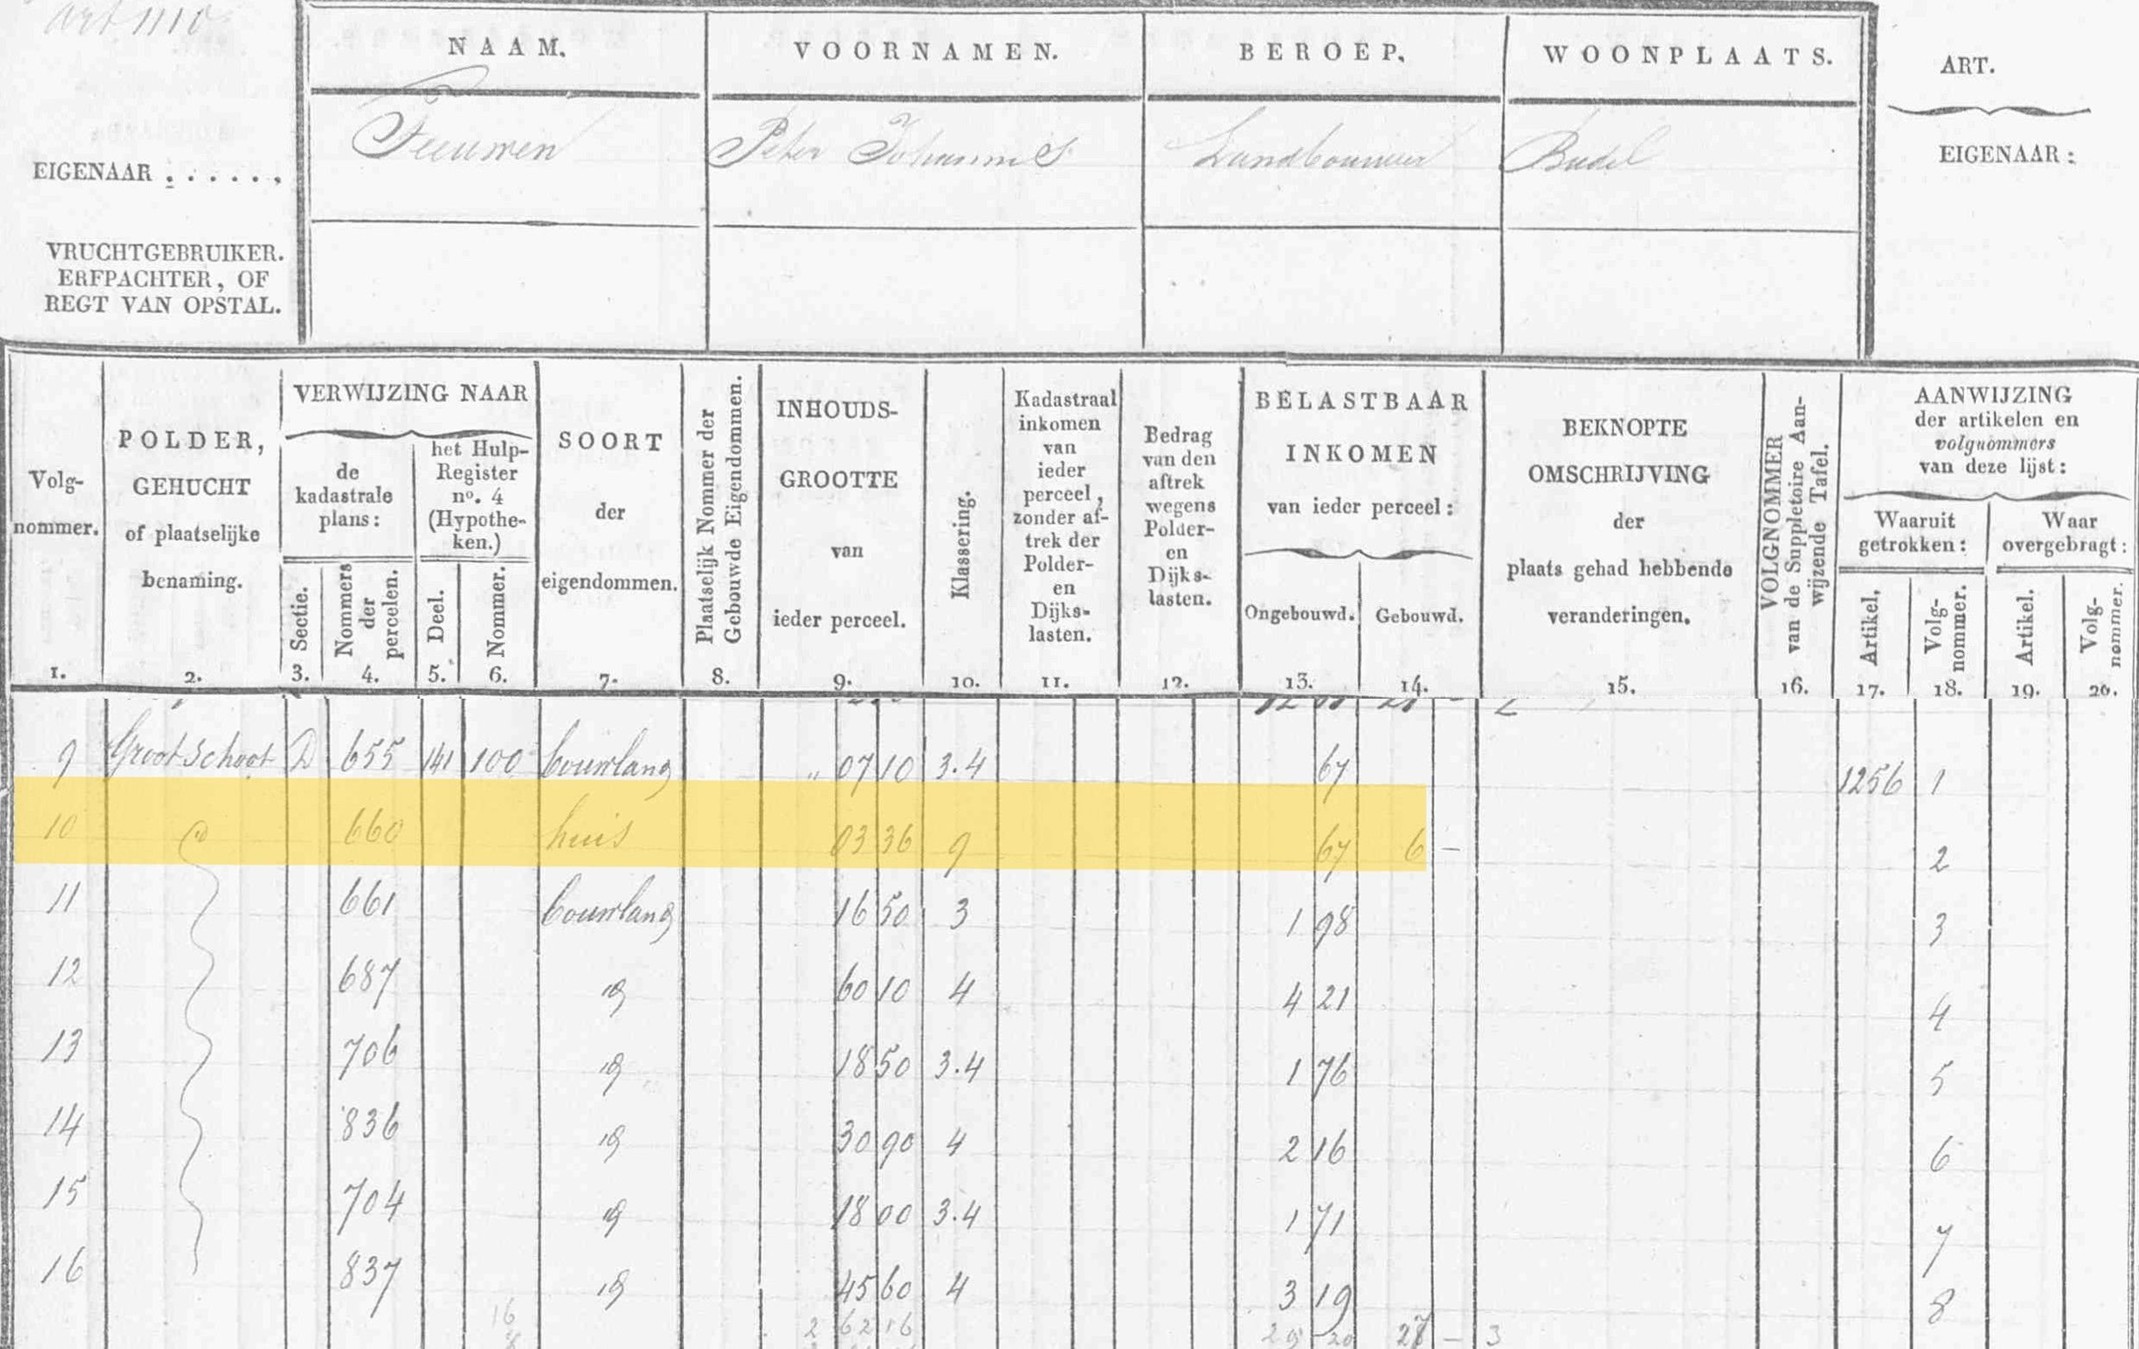 art 1110
NAAM. VOORNAMEN. BEROEP. WOONPLAATS. ART.
EIGENAAR : . . . . . , Teeuwen Peter Johannes Landbouwer Budel EIGENAAR :
VRUCHTGEBRUIKER.
ERFPACHTER, OF
REGT VAN OPSTAL.
Volg-
nommer.
1.
POLDER,
GEHUCHT
of plaatselijke
benaming.
2.
VERWIJZING NAAR
de
kadastrale
plans:
Sectie.
3.
Nommers
der
percelen.
4.
het Hulp-
Register
no. 4
(Hypothe-
ken.)
Deel.
5.
Nommer.
6.
SOORT
der
eigendommen.
7.
Plaatselijk Nommer der
Gebouwde Eigendommen.
8.
INHOUDS-
GROOTTE
van
ieder perceel.
9.
Klassering.
10.
Kadastraal
inkomen
van
ieder
perceel,
zonder af-
trek der
Polder-
en
Dijks-
lasten.
11.
Bedrag
van den
aftrek
wegens
Polder-
en
Dijks-
lasten.
12.
BELASTBAAR
INKOMEN
van ieder perceel:
Ongebouwd.
13.
Gebouwd.
14.
BEKNOPTE
OMSCHRIJVING
der
plaats gehad hebbende
veranderingen.
15.
VOLGNOMMER
van de Suppletoire Aan-
wijzende Tafel.
16.
AANWIJZING
der artikelen en
volgnommers
van deze lijst:
Waaruit
getrokken:
Artikel.
17.
Volg-
nommer.
18.
Waar
overgebragt:
Artikel.
19.
Volg-
nommer.
20.
9 Grootschoot D 655 141 100 bouwland " 07 10 3.4 67 1256 1
10 660 huis 03 36 9 67 6 – 2
11 661 bouwland 16 50 3 1 98 3
12 687 60 10 4 4 21 4
13 706 18 50 3.4 1 76 5
14 836 30 90 4 2 16 6
15 704 18 00 3.4 1 71 7
16 837 45 60 4 3 19 8
16 2 62 16 28 – 3
8